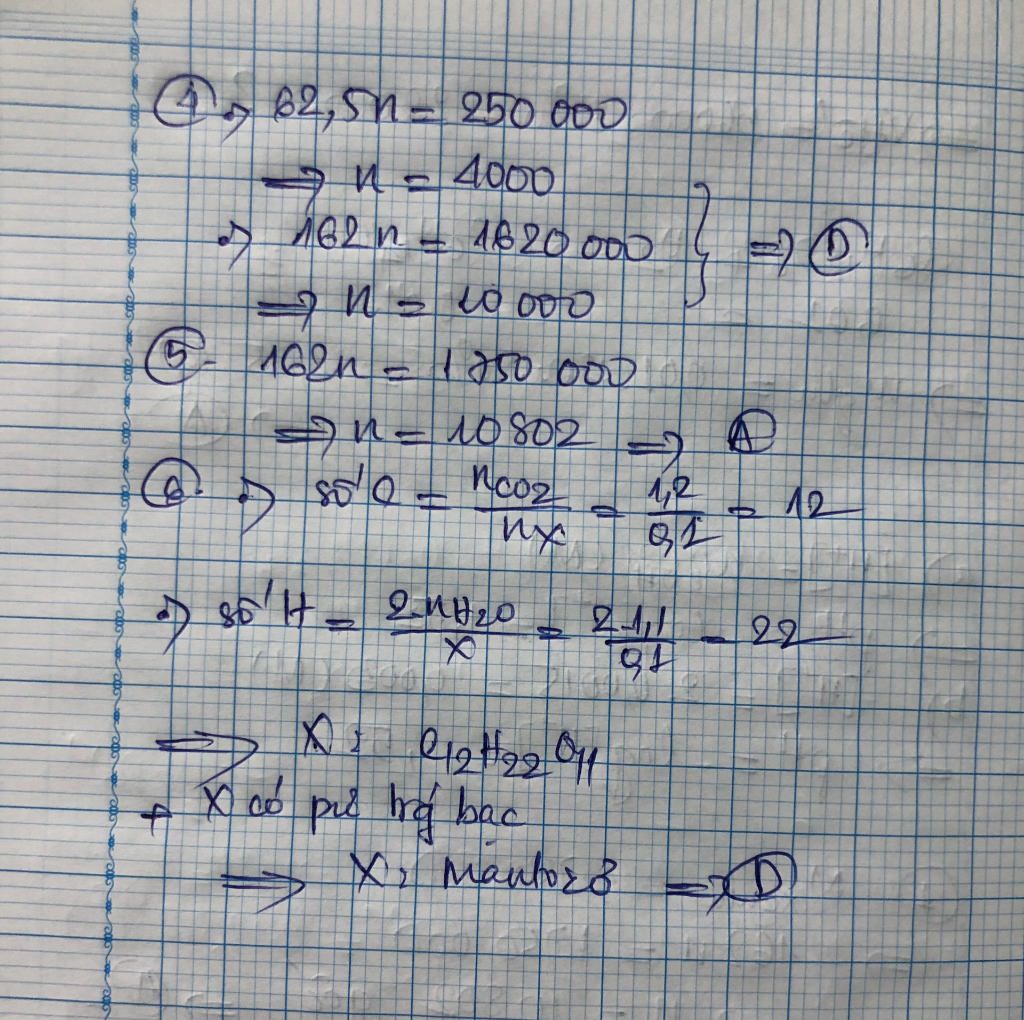 ④ → 62,5n = 250 000
⟹ n = 4000
→ 162n = 1620 000 } ⟹ Ⓓ
⟹ n = 10 000
⑤ 162n = 1750 000
⟹ n = 10802 ⟹ Ⓐ
⑥ → số C = nCO2/nX = 1,2/0,1 = 12
→ số H = 2.nH2O/X = 2.1,1/0,1 = 22
⟹ X: C12H22O11
+ X có pứ tráng bạc
⟹ X: Mantozơ ⟹ Ⓓ